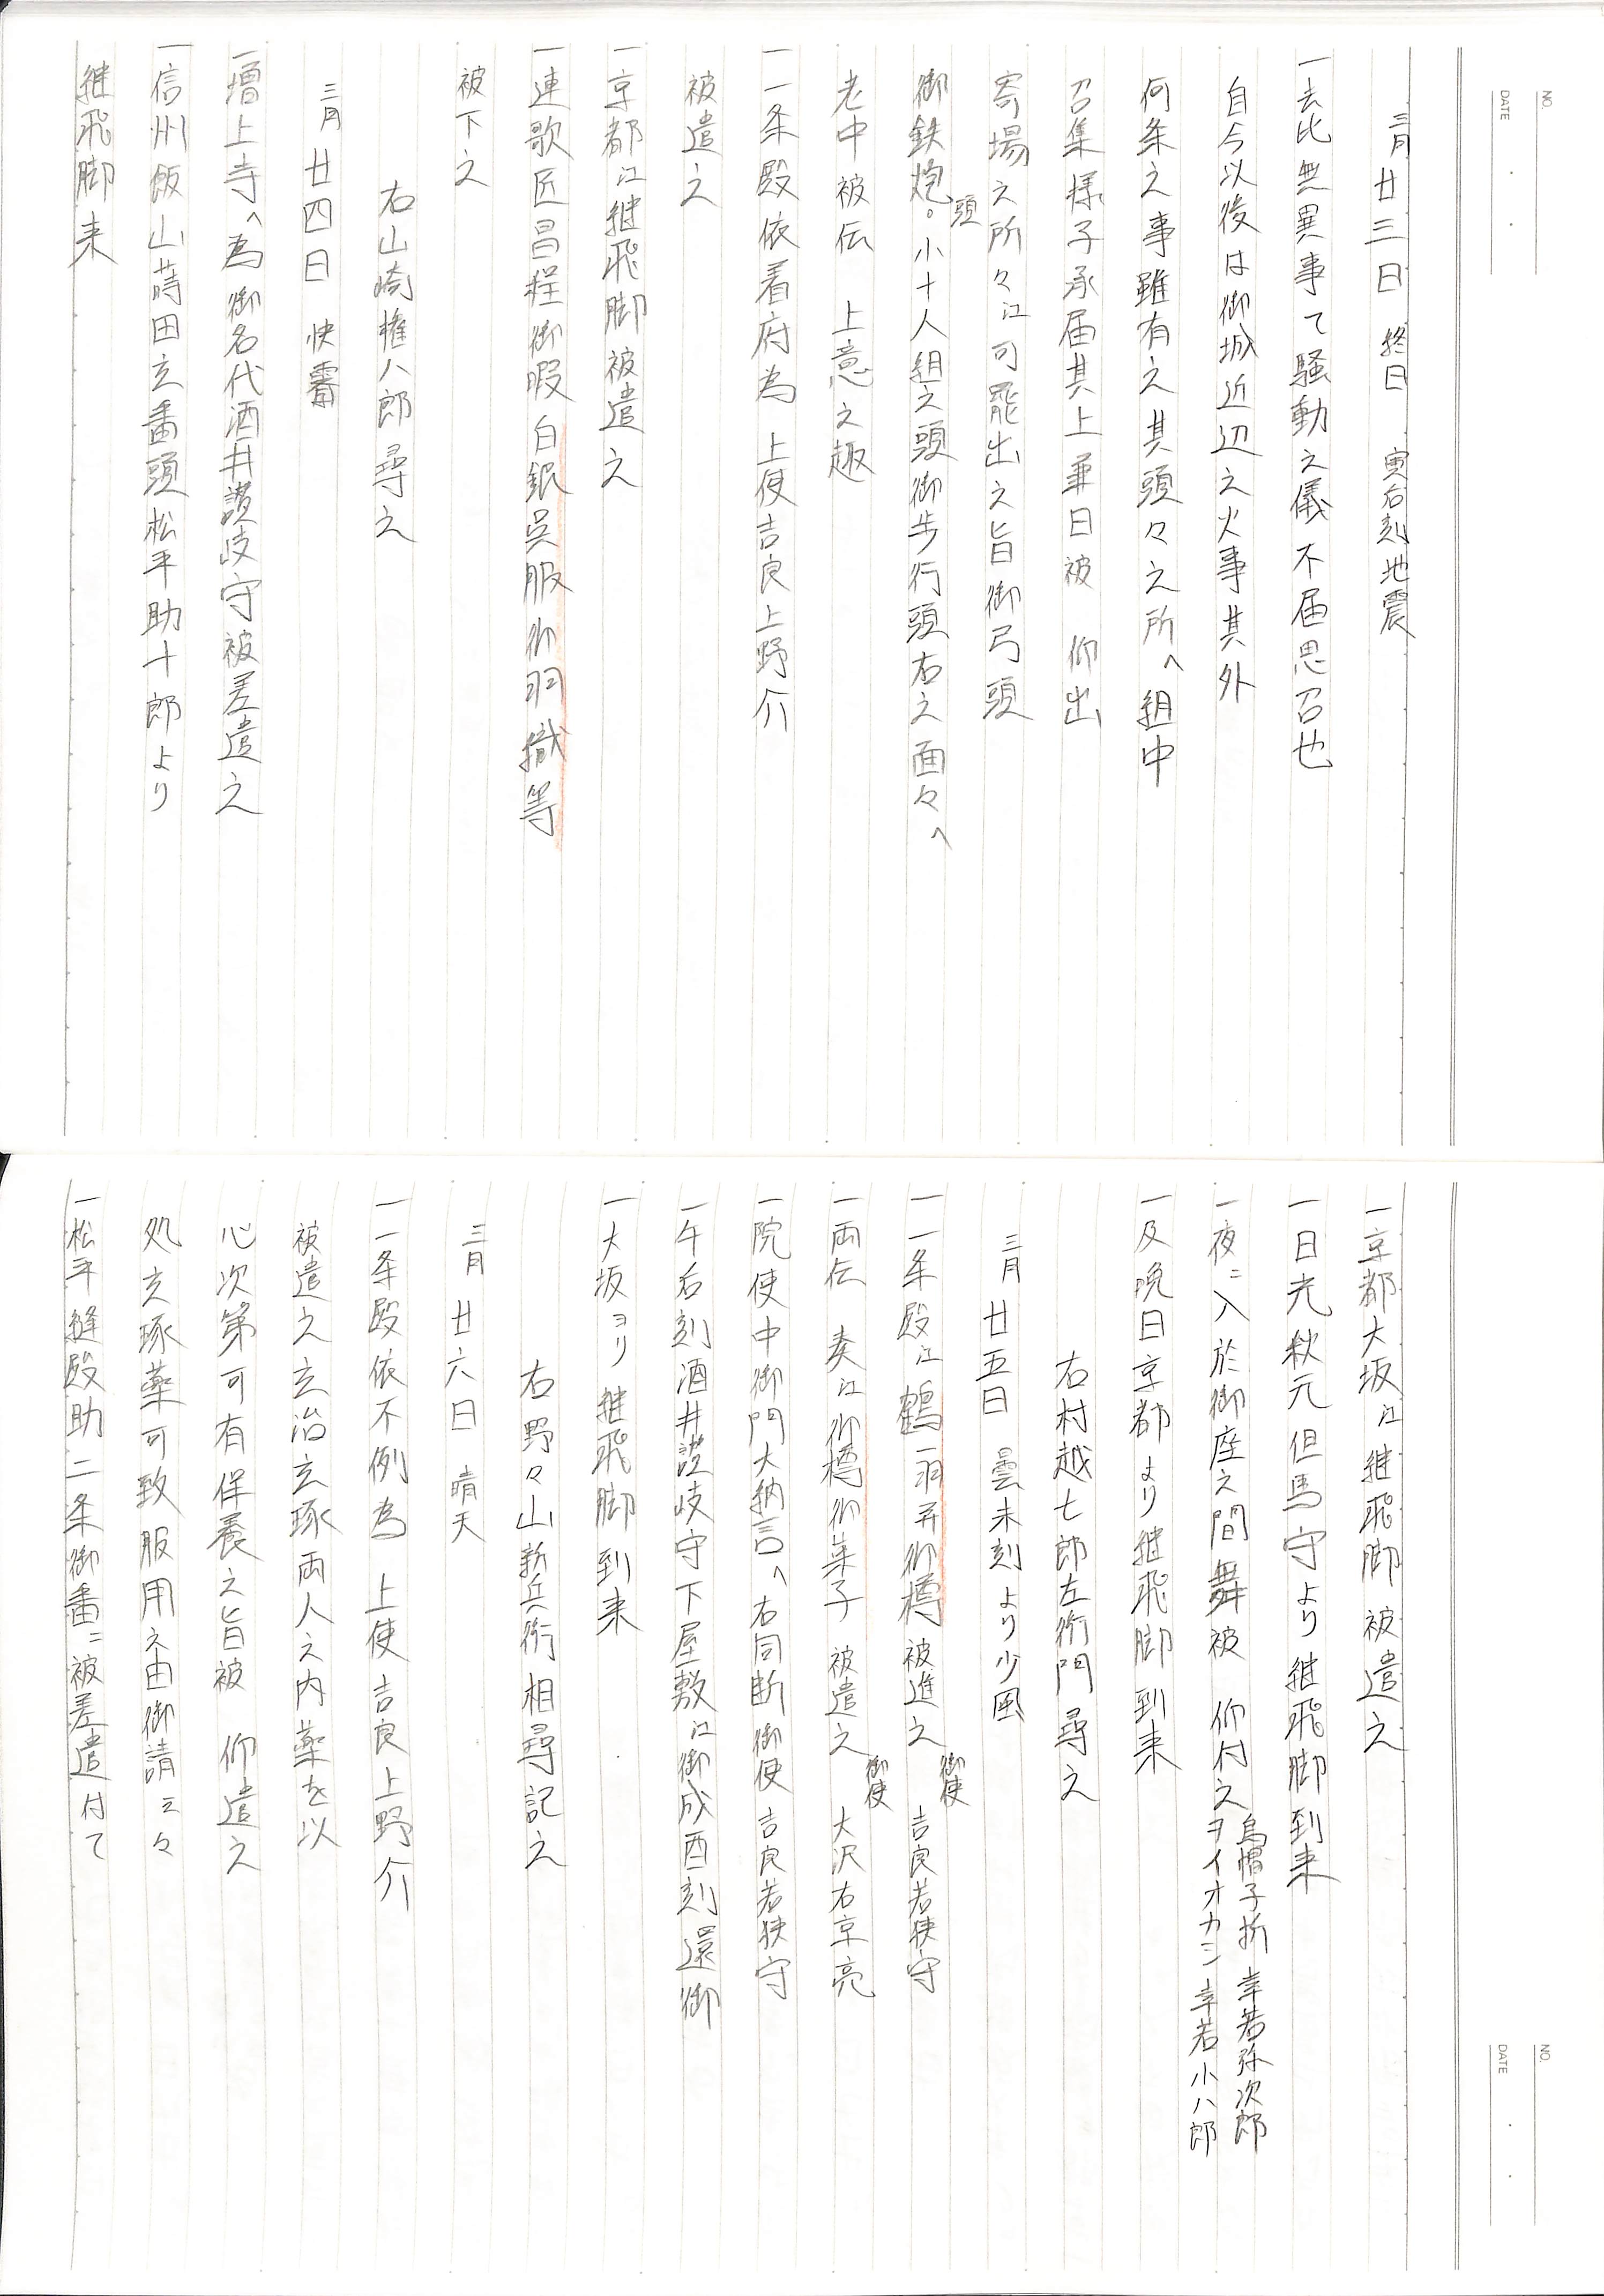 NO.
DATE
三月廿三日 終日 寅后刻地震
一去比無異事て騒動之儀不届思召也
自今以後は御城近辺之火事其外
何条之事雖有之其頭々之所へ組中
召集様子承届其上兼日被 仰出
寄場之所々江可罷出之旨御弓頭
御鉄炮。頭小十人組之頭御歩行頭右之面々へ
老中被伝 上意之趣
一一条殿依着府為 上使吉良上野介
被遣之
一京都江継飛脚被遣之
一連歌匠昌程御暇白銀呉服御羽織等
被下之
右山崎権八郎尋之
三月廿四日 快霽
一増上寺へ為御名代酒井讃岐守被差遣之
一信州飯山蒔田立番頭松平助十郎より
継飛脚来
NO.
DATE
一京都大坂江継飛脚被遣之
一日光秋元但馬守より継飛脚到来
一夜ニ入於御座之間舞被 仰付之
烏帽子折 幸若弥次郎
ヲイオカシ 幸若小八郎
一及晩日京都より継飛脚到来
右村越七郎左衛門尋之
三月廿五日 曇未刻より少風
一一条殿江鶴一羽并御樽被進之 御使 吉良若狭守
一両伝 奏江御樽御菓子被遣之 御使 大沢右京亮
一院使中御門大納言へ右同断御使 吉良若狭守
一午后刻酒井讃岐守下屋敷江御成酉刻還御
一大坂ヨリ継飛脚到来
右野々山新兵衛相尋記之
三月廿六日 晴天
一一条殿依不例為 上使吉良上野介
被遣之玄治玄琢両人之内薬を以
心次第可有保養之旨被 仰遣之
処玄琢薬可致服用之由御請云々
一松平縫殿助二条御番ニ被差遣付て